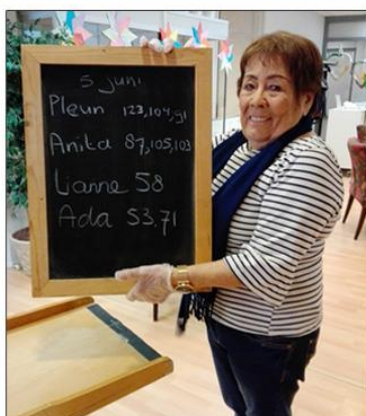 5 juni
Pleun 123,104,91
Anita 87,105,103
Lianne 58
Ada 53,71